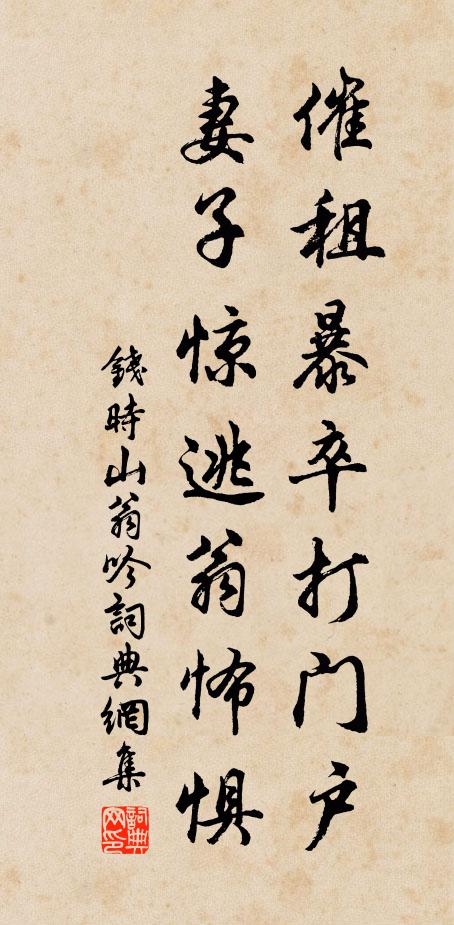 催租暴卒打门户
妻子惊逃翁怖惧
錢時山翁吟詞典網集
詞典网印